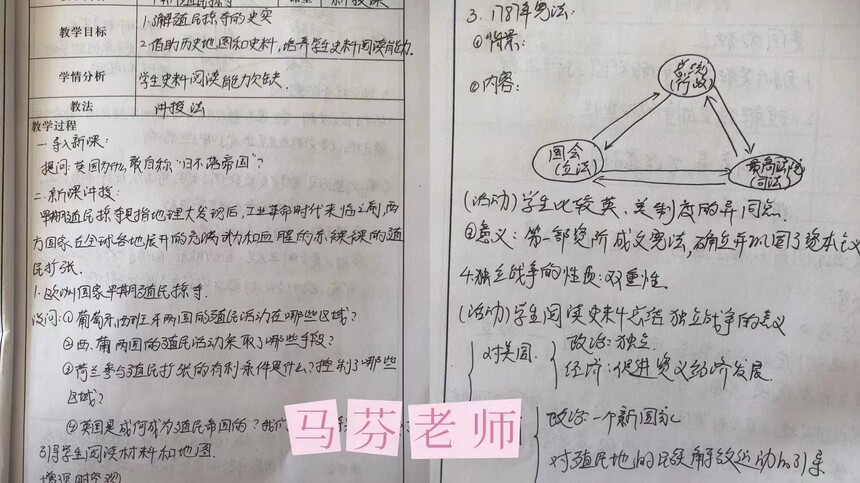 教学目标
1.了解殖民掠夺的史实
2.借助历史地图和史料,培养学生史料阅读能力.
学情分析
学生史料阅读能力欠缺.
教法
讲授法
教学过程
一.导入新课:
提问:英国为什么敢自称“日不落帝国”?
二.新课讲授:
早期殖民掠夺是指地理大发现后,工业革命时代来临之前,西
方国家在全球各地展开的充满武力和血腥的赤裸裸的殖
民扩张.
1.欧洲国家早期殖民掠夺.
设问:①葡萄牙,西班牙两国的殖民活动在哪些区域?
②西.葡两国的殖民活动采取了哪些手段?
③荷兰参与殖民扩张的有利条件是什么?控制了哪些
区域?
④英国是如何成为殖民帝国的?我们
引导学生阅读材料和地图.
增强时空观
3.1787年宪法:
①背景:
②内容:
总统
(行政)
国会
(立法)
最高法院
(司法)
(活动)学生比较英、美制度的异同点.
③意义:第一部资阶成文宪法,确立并巩固了资本主义
4.独立战争的性质:双重性.
(活动)学生阅读史料总结独立战争的意义
对美国.
政治:独立.
经济:促进资义经济发展.
政治:一个新国家
对殖民地的民族解放运动
马芬老师